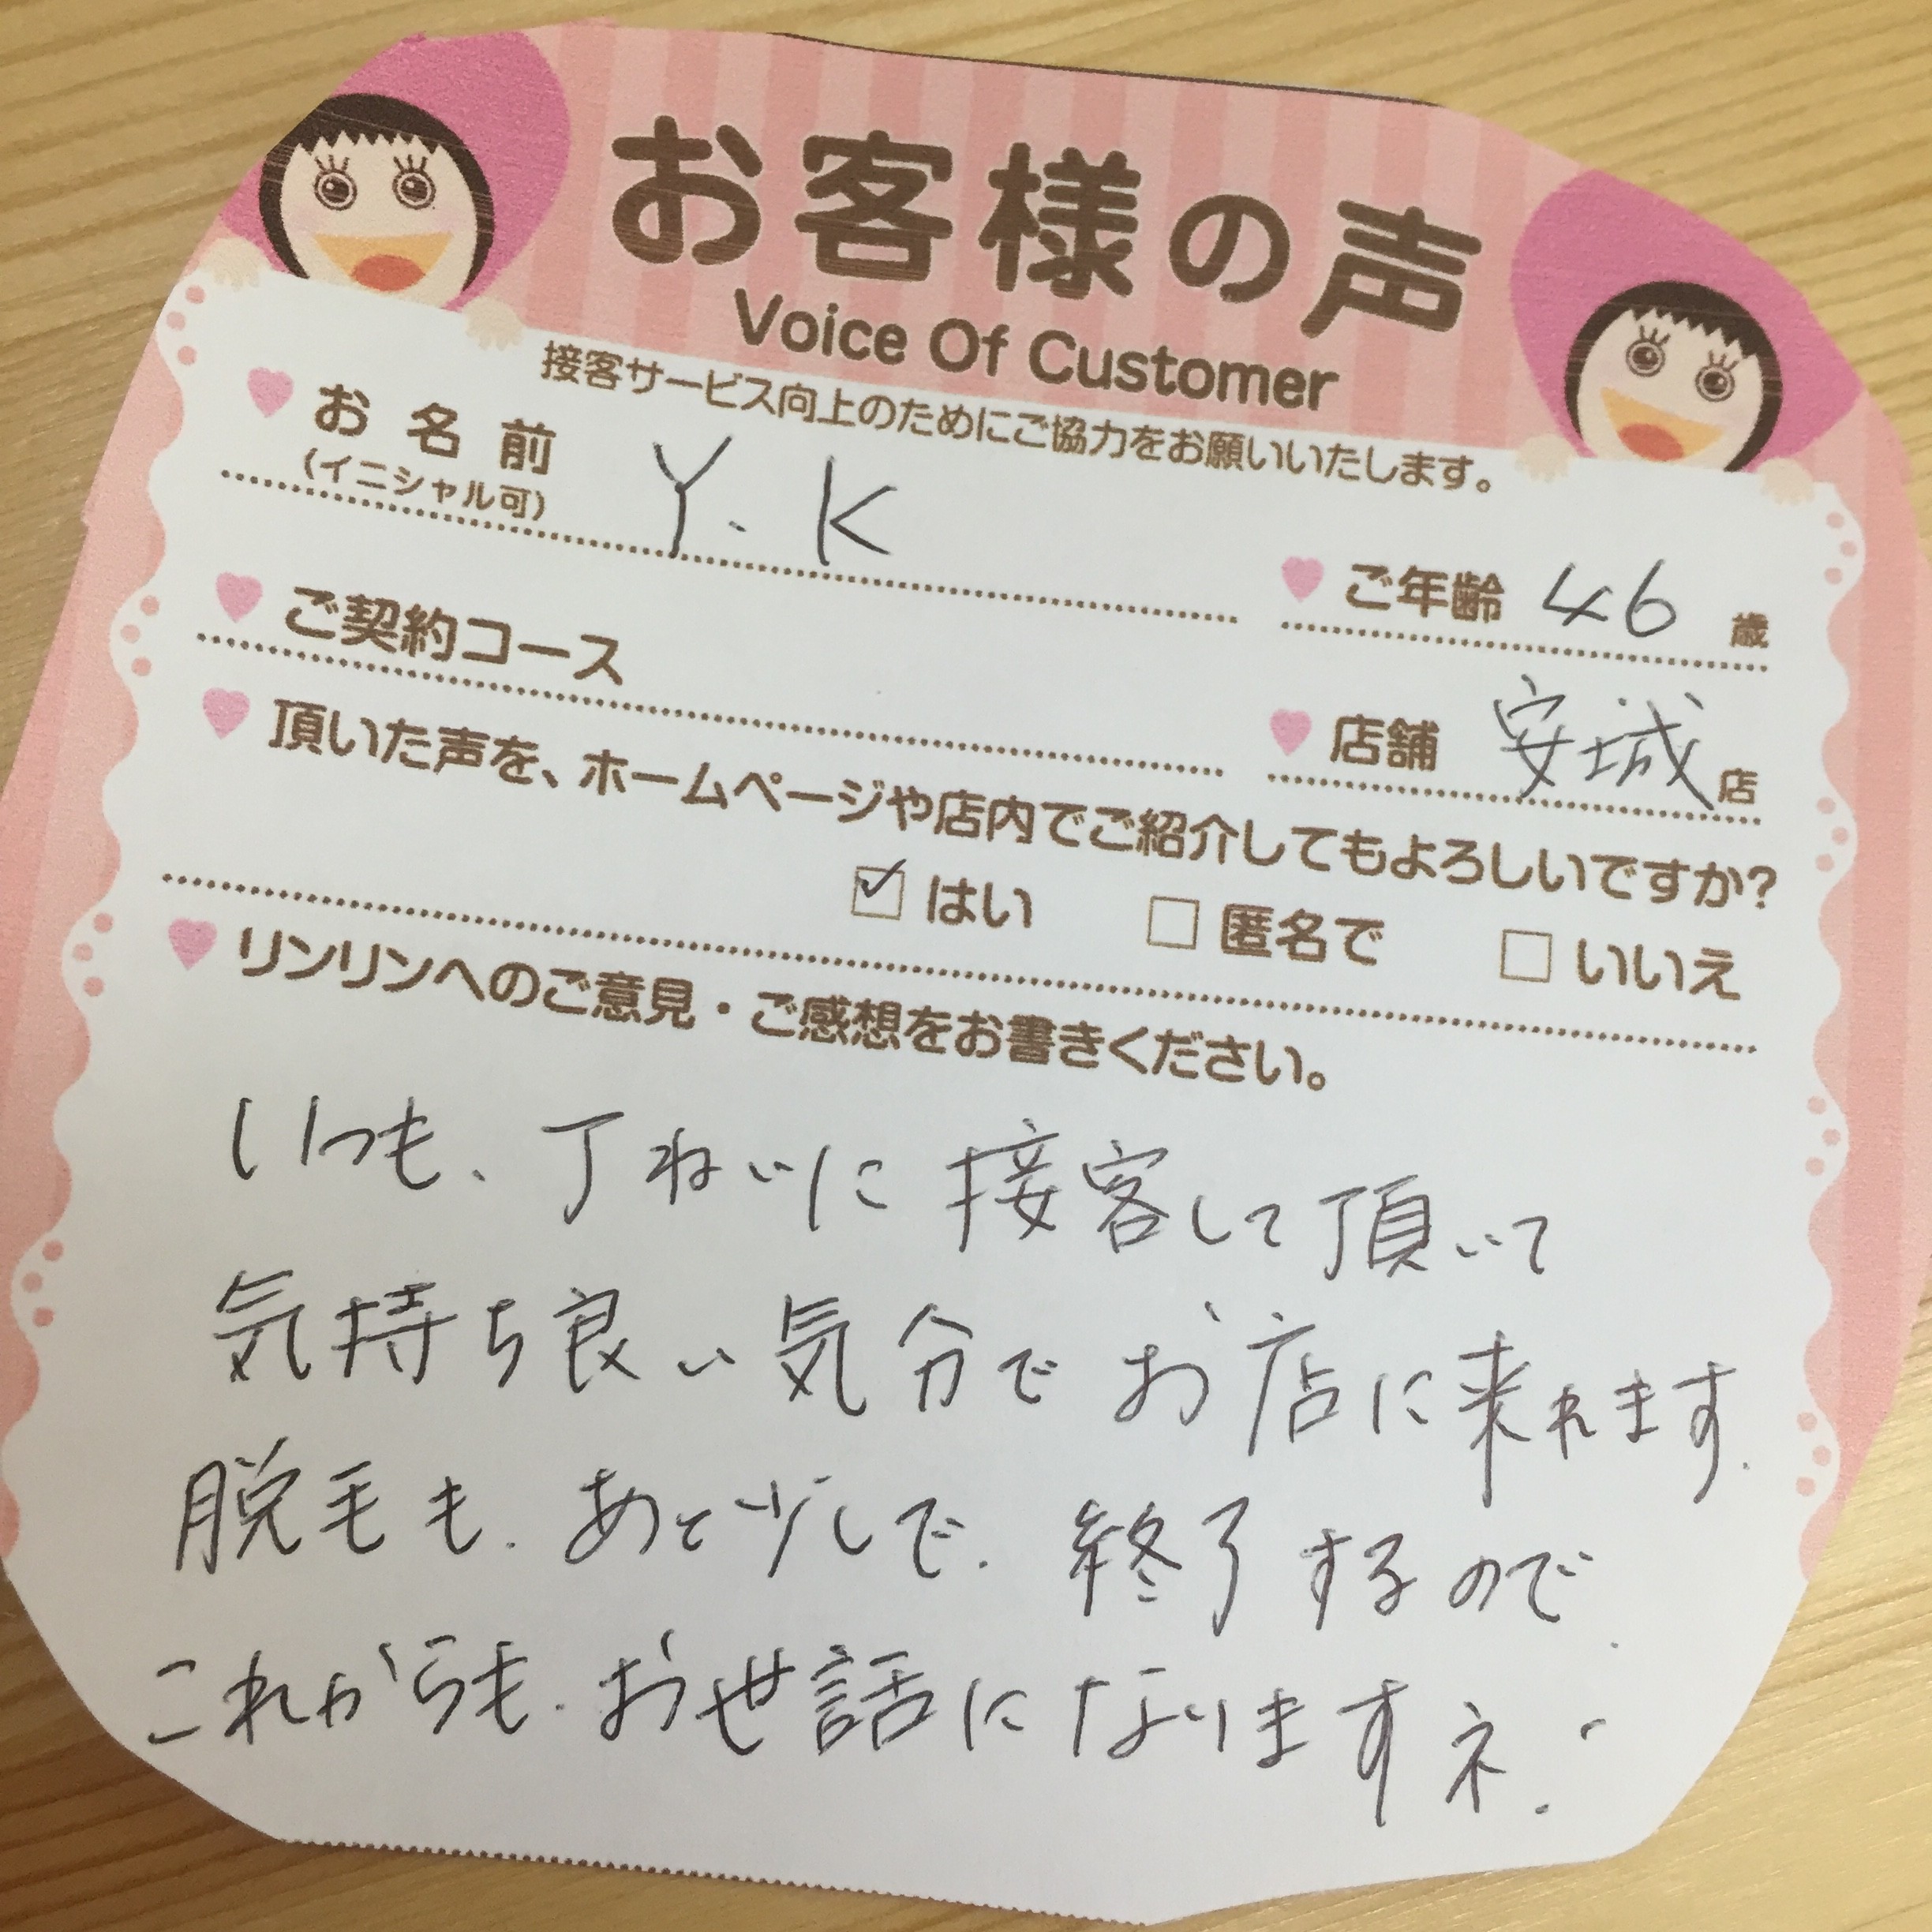 お客様の声
Voice Of Customer
接客サービス向上のためにご協力をお願いいたします。
お名前
(イニシャル可)
Y.K
ご年齢 46 歳
ご契約コース
店舗 安城店
頂いた声を、ホームページや店内でご紹介してもよろしいですか?
はい 匿名で いいえ
リンリンへのご意見・ご感想をお書きください。
いつも、丁ねいに接客して頂いて
気持ち良い気分でお店に来れます.
脱毛も.あと少しで.終了するので
これからも.お世話になりますネ.